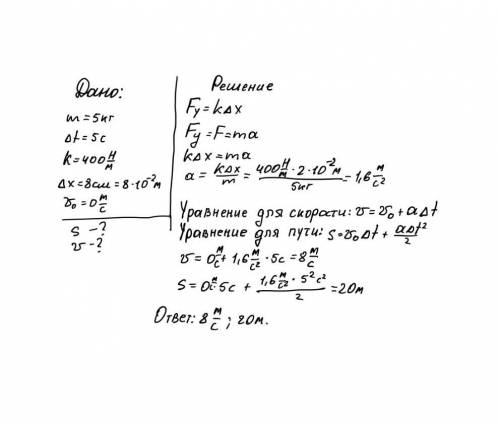 Дано:
m = 5кг
Δt = 5с
k = 400 Н/м
Δx = 8см = 8·10⁻²м
v₀ = 0 м/с
S – ?
v – ?
Решение
Fу = kΔx
Fу = F = ma
kΔx = ma
a = kΔx/m = (400 Н/м · 2·10⁻²м)/5кг = 1,6 м/с²
Уравнение для скорости: v = v₀ + aΔt
Уравнение для пути: s = v₀Δt + aΔt²/2
v = 0 м/с + 1,6 м/с² · 5с = 8 м/с
S = 0 м/с · 5с + (1,6 м/с² · 5²с²)/2 = 20м
Ответ: 8 м/с ; 20м.